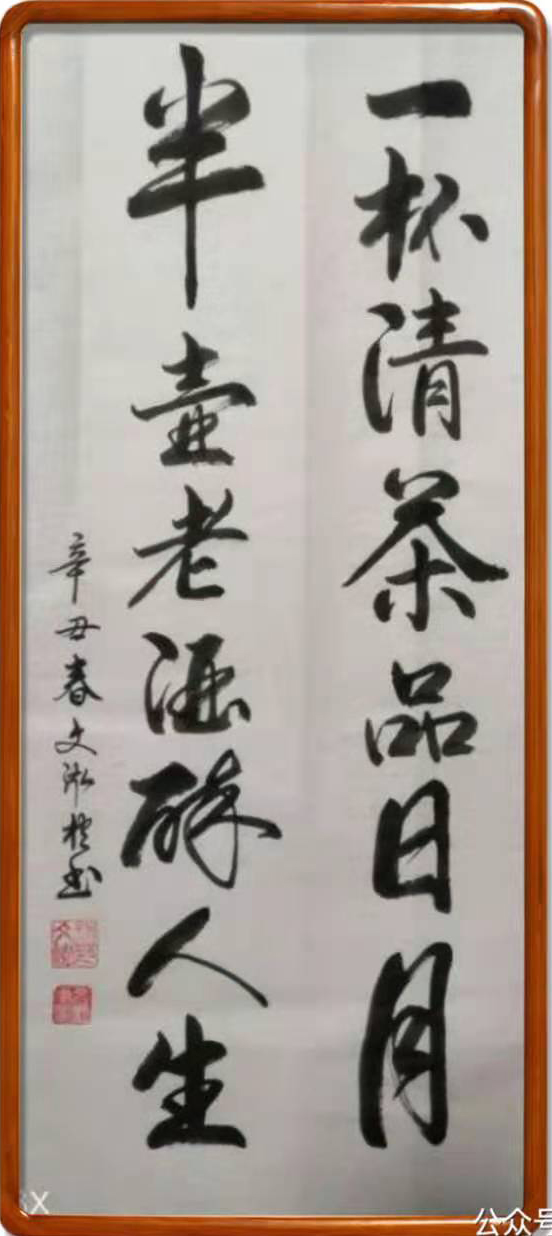 一杯清茶品日月
半壶老酒醉人生
辛丑春文泓楷书
X
公众号